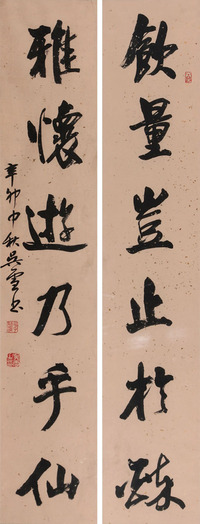 飲量豈止於醉
雅懷遊乃乎仙
辛卯中秋吳雪書